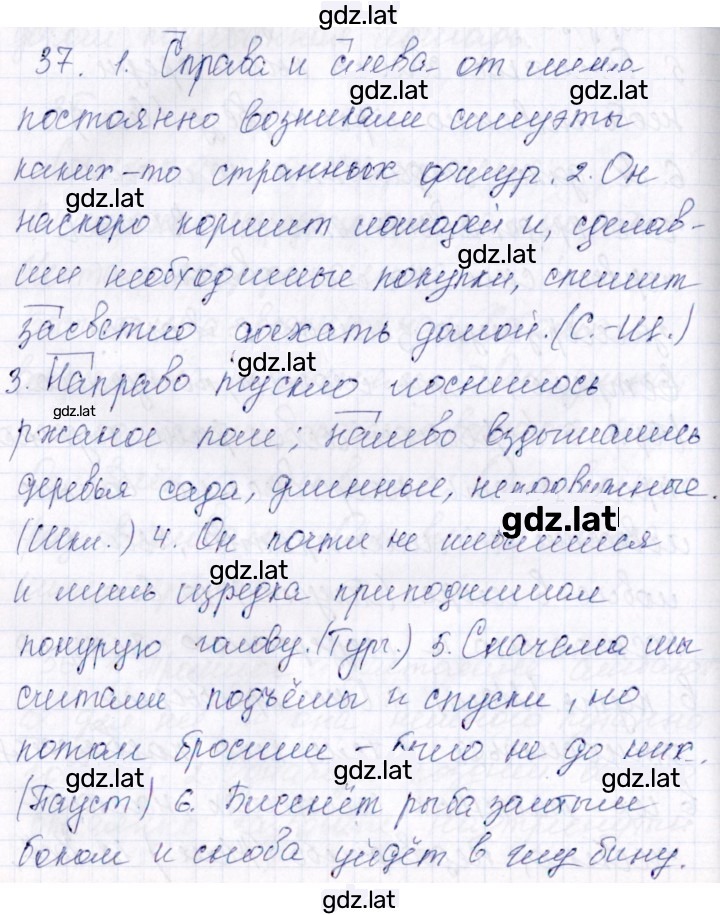 gdz.lat
37. 1. Справа и слева от меня
gdz.lat gdz.lat
постоянно возникали силуэты
каких-то странных фигур. 2. Он
gdz.lat
наскоро кормит лошадей и, сделав-
gdz.lat
ши необходимые покупки, спешит
засветло доехать домой. (С.-Щ.)
gdz.lat
3. Направо тускло лоснилось
gdz.lat
ржаное поле; налево вздымались
деревья сада, длинные, неподвижные.
gdz.lat
(Шол.) 4. Он почти не шевелился
gdz.lat
и лишь изредка приподнимал
понурую голову. (Тург.) 5. Сначала мы
gdz.lat
считали подъёмы и спуски, но
потом бросили - было не до них.
gdz.lat gdz.lat gdz.lat
(Пауст.) 6. Блеснёт рыба золотым
боком и снова уйдёт в глубину.
gdz.lat